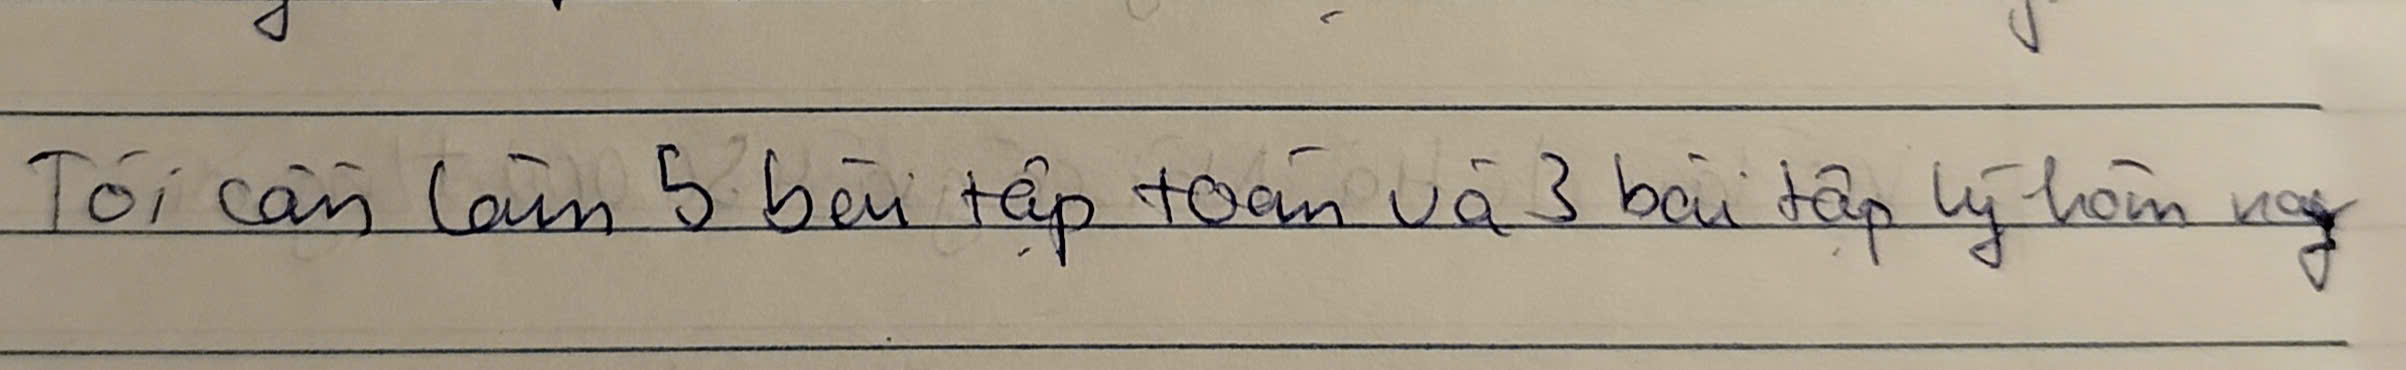 Tôi cần làm 5 bài tập toán và 3 bài tập lý hôm nay